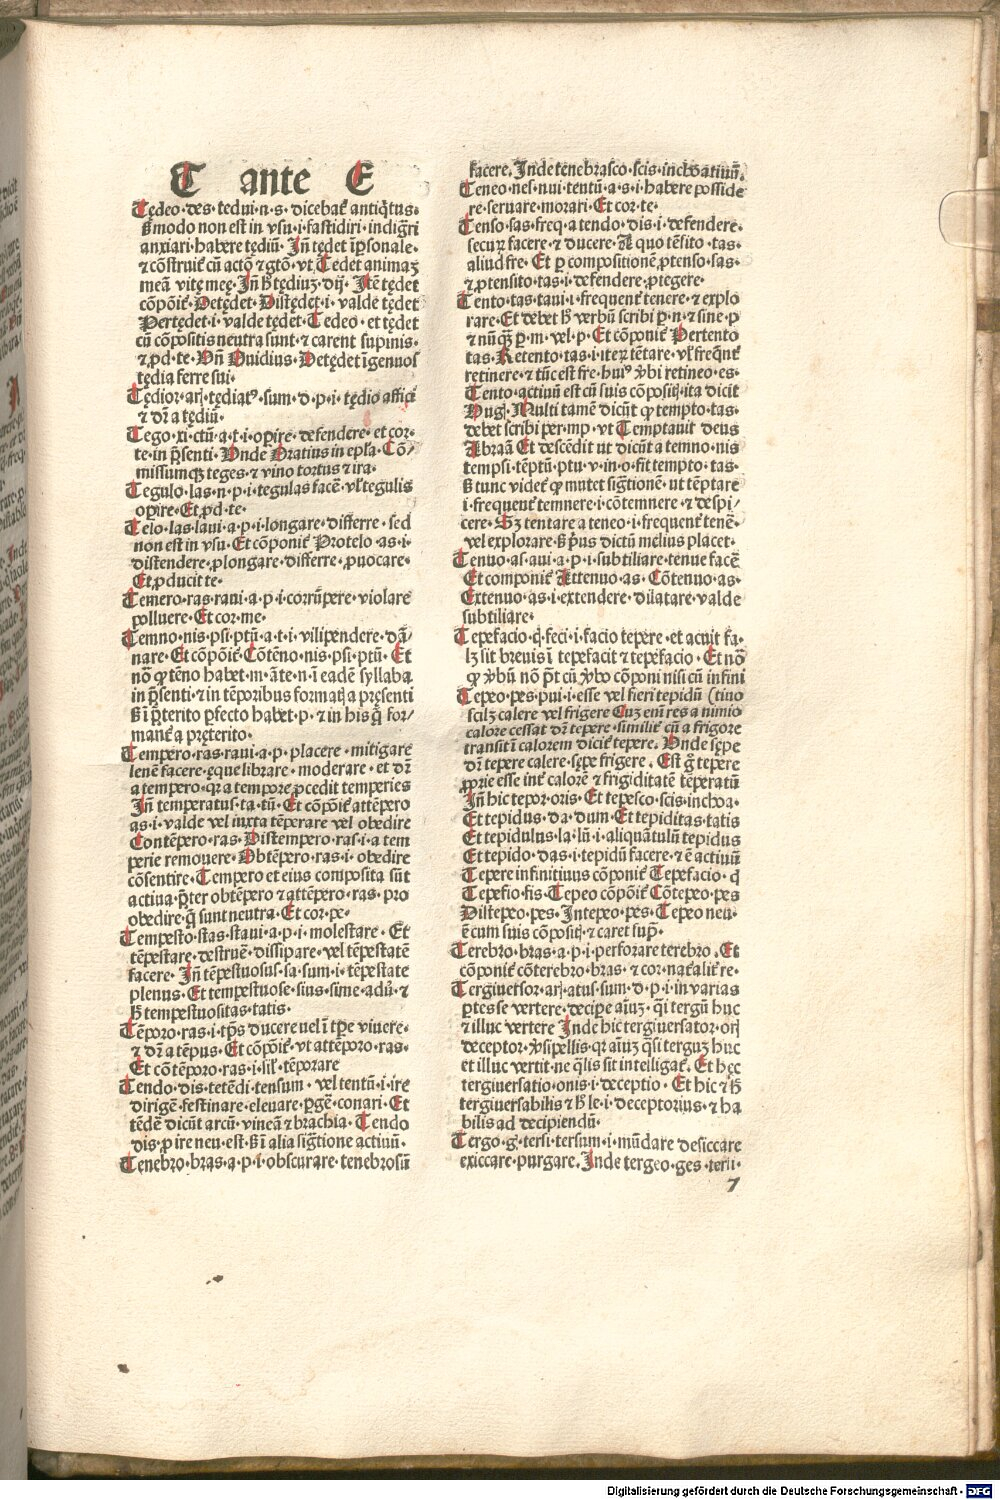 T ante E
Tędeo·des·tedui·n·s·dicebat᷒ antiq̇tus·
s̄ modo non est in vsu·i·fastidiri·indigr̄i
anxiari·habere tędiū· Jn̄ tędet īp̱sonale·
⁊ cōstruit᷒ cū actō ⁊ gtō·vt Tedet animaꝫ
meā vitę męę·Jn̄ h̄ tędiuꝫ·dij· Jtē tędet
cōpōit᷒·Petędet·Distędet·i·valde tędet
Pertędet·i·valde tędet·Tedeo·et tędet
cū cōpositis neutra sunt·⁊ carent supinis·
⁊ ꝓd·te·Vn̄ Ouidius·Detędet īgenuos
tędia ferre sui·
Tędior·arꝭ·tędiatꝰ·sum·d·p·i·tędio affici
⁊ dr̄ a tędiū·
Tego·xi·ctū·a·t·i·oꝑire·defendere·et cor·
te·in p̄senti·Vnde Oratius in epl̄a·Cō/
missumqꝫ teges·⁊ vino tortus ⁊ ira·
Tegulo·las·n·p·i·tegulas facē᷒·vl᷒ tegulis
oꝑire·Et ꝓd·te·
Telo·las·laui·a·p·i·longare·differre·sed
non est in vsu·Et cōponit᷒ Protelo·as·i·
distendere·ꝓlongare·differre·ꝓuocare·
Et ꝓducit te·
Temero·ras·raui·a·p·i·corrūpere·violare
polluere·Et cor·me·
Temno·nis·psi·ptū·a·t·i·vilipendere·dā/
nare·Et cōpōit᷒·Cōtēno·nis·psi·ptū·Et
nō ꝙ tēno habet·m·āte·n·ī eadē syllaba
in p̄senti·⁊ in tēporibus formatꝭ a pręsenti
s̄ ī p̄terito ꝑfecto habet·p·⁊ in his q̄ for/
mant᷒ a pręterito·
Tempero·ras·raui·a·p·placere·mitigare
lenē facere·ęquelibrare·moderare·et dr̄
a tempero·qr a tempore ꝓcedit temperies
Jn̄ temperatus·ta·tū·Et cōpōit᷒ attēpero
as·i·valde vel iuxta tēperare vel obedire
Contēpero·ras·Distempero·ras·i·a tem
perie remouere·Obtēpero·ras·i·obedire
cōsentire·Tempero et eius composita sūt
actiua·p̄ter obtēpero ⁊ attēpero·ras·pro
obedire·q̄ sunt neutra·Et cor·pe·
Tempesto·stas·staui·a·p·i·molestare·Et
tēpestare·destruē᷒·dissipare·vel tēpestatē
facere· Jn̄ tēpestuosus·sa·sum·i·tēpestate
plenus·Et tempestuose·sius·sime·adū·⁊
h̄ tempestuositas·tatis·
Tēporo·ras·i·tp̄s ducere uel ī tꝑe viuere·
⁊ dr̄ a tēpus·Et cōpōit᷒·vt attēporo·ras·
Et cōtēporo·ras·i·sil᷒·tēporare
Tendo·dis·tetēdi·tensum·vel tentū·i·ire
dirigē᷒·festinare·eleuare·ꝑgē᷒·conari·Et
tēdē᷒ dicūt arcū·vineā ⁊ brachia·Tendo
dis·ꝓ ire neu·est·s̄ ī alia sigtione actiuū·
Tenebro·bras·a·p·i·obscurare·tenebrosū
facere·Jnde tenebrasco·scis·inchoatiuū·
Teneo·nes·nui·tentū·a·s·i·habere posside
re·seruare·morari·Et cor·te·
Tenso·sas·freq̄·a tendo·dis·i·defendere·
securꝫ facere·⁊ ducere·A quo tēsito·tas·
aliud fre·Et ꝑ compositionē ꝓtenso·sas·
⁊ ꝓtensito·tas·i·defendere·ꝓtegere·
Tento·tas·taui·i·frequent᷒ tenere·⁊ explo
rare·Et debet h̄ verbū scribi ꝑ·n·⁊ sine·p
⁊ nūq̄ꝫ ꝑ·m·vel·p·Et cōponit᷒ Pertento
tas·Retento·tas·i·iteꝝ tētare·vl᷒ freq̄nt᷒
retinere·⁊ tūc est fre·huiꝰ ꝟbi retineo·es·
Tento·actiuū est cū suis cōpositꝭ·ita dicit
Hugꝭ·Multi tamē dicūt ꝙ tempto·tas·
debet scribi per·mp·vt Temptauit deus
Abraā Et descēdit ut dicūt a temno·nis
tempsi·tēptū·ptu·v·in·o·fit tempto·tas·
s̄ tunc videt᷒ ꝙ mutet sigtionē·ut tēptare
i·frequent᷒ temnere·i·cōtemnere·⁊ despi/
cere·Sꝫ tentare a teneo·i·frequent᷒ tenē᷒·
vel explorare·s̄ p̄us dictū melius placet·
Tenuo·as·aui·a·p·i·subtiliare·tenue facē᷒
Et componit᷒ Attenuo·as·Cōtenuo·as·
Extenuo·as·i·extendere·dilatare·valde
subtiliare·
Tepefacio·q̇·feci·i·facio tepere·et acuit fa·
lꝫ sit breuis ī tepefacit ⁊ tepefacio·Et nō
ꝙ ꝟbū nō p̄t cū ꝟbo cōponi nisi cū infini
Tepeo·pes·pui·i·esse vel fieri tepidū (tino
scilꝫ calere vel frigere Cuꝫ enī res a nimio
calore cessat dr̄ tepere·similit᷒ cū a frigore
transit ī calorem dicit᷒ tepere·Vnde sępe
dr̄ tepere calere·sępe frigere·Est g̊ tepere
ꝓprie esse int᷒ calorē ⁊ frigiditatē tēperatū
Jn̄ hic tepor·oris·Et tepesco·scis·inchoa·
Et tepidus·da·dum·Et tepiditas·tatis
Et tepidulus·la·lū·i·aliquātulū tepidus
Et tepido·das·i·tepidū facere·⁊ ē actiuū
Tepere infinitiuus cōponit᷒ Tepefacio·q̇
Tepefio·fis·Tepeo cōpōit᷒ Cōtepeo·pes
Distepeo·pes·Jntepeo·pes·Tepeo neu·
ē cum suis cōpositꝭ·⁊ caret sup̄·
Terebro·bras·a·p·i·perforare terebro·Et
cōponit᷒ cōterebro·bras·⁊ cor·nat᷒alit᷒ re·
Tergiuersor·arꝭ·atus·sum·d·p·i·in varias
ꝑtes se vertere·decipe aīuꝫ·q̇·i·tergū huc
⁊ illuc vertere Jnde hic tergiuersator·orꝭ
deceptor·ꝟsipellis·qr aīuꝫ q̇si terguꝫ huc
et illuc vertit·ne q̄lis sit intelligat᷒·Et hęc
tergiuersatio·onis·i·deceptio·Et hic ⁊ h̄
tergiuersabilis ⁊ h̄ le·i·deceptorius·⁊ ha
bilis ad decipiendū·
Tergo·gꝭ·tersi·tersum·i·mūdare desiccare
exiccare·purgare·Jnde tergeo·ges·tersi·
7
Digitalisierung gefördert durch die Deutsche Forschungsgemeinschaft - DFG